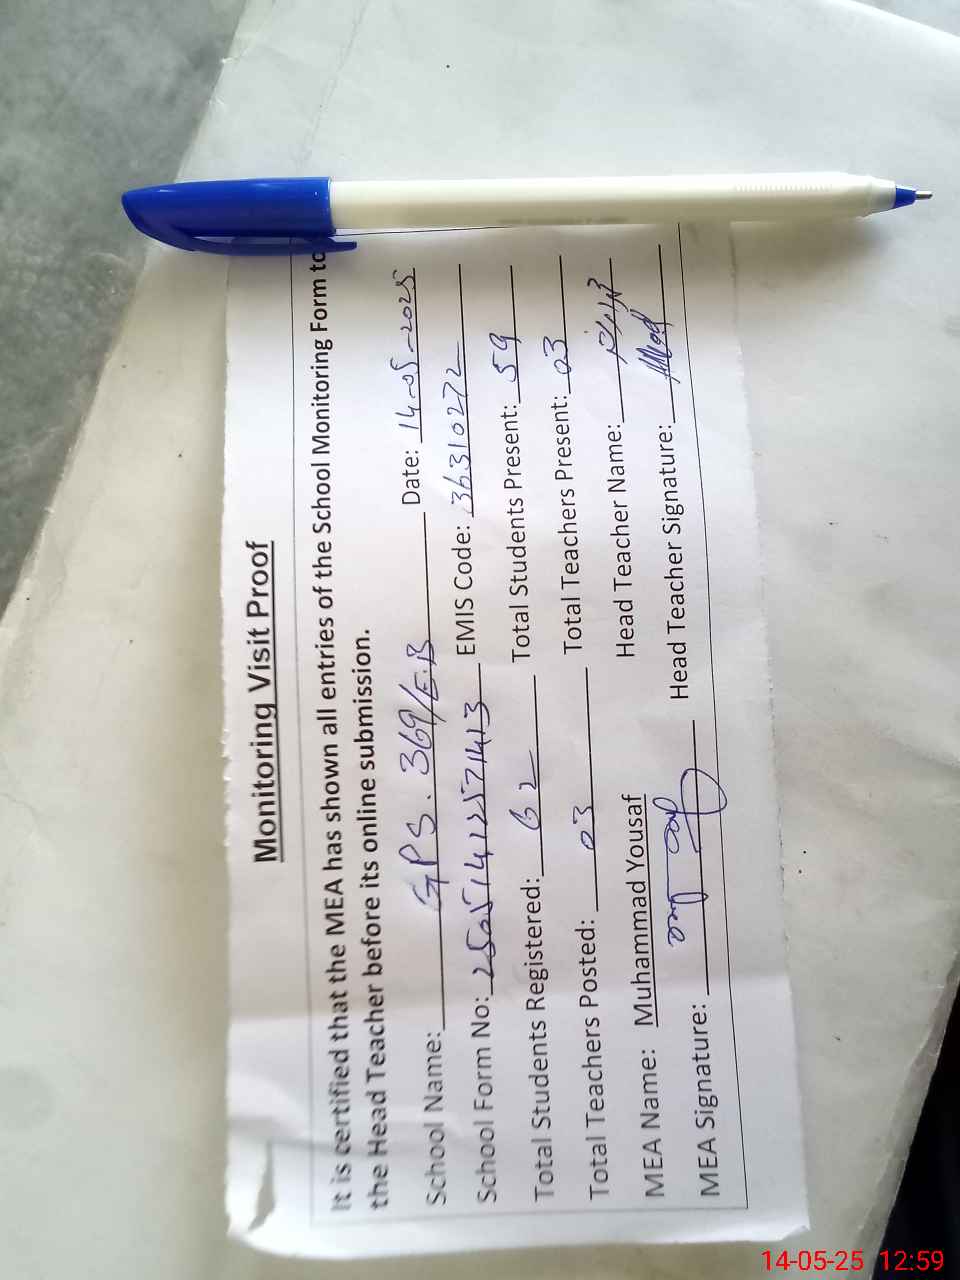 Monitoring Visit Proof
It is certified that the MEA has shown all entries of the School Monitoring Form to
the Head Teacher before its online submission.
School Name: GPS. 369/E.B Date: 14-05-2025
School Form No: 25051412571413 EMIS Code: 36310272
Total Students Registered: 62 Total Students Present: 59
Total Teachers Posted: 03 Total Teachers Present: 03
MEA Name: Muhammad Yousaf Head Teacher Name:
MEA Signature: Head Teacher Signature:
14-05-25 12:59